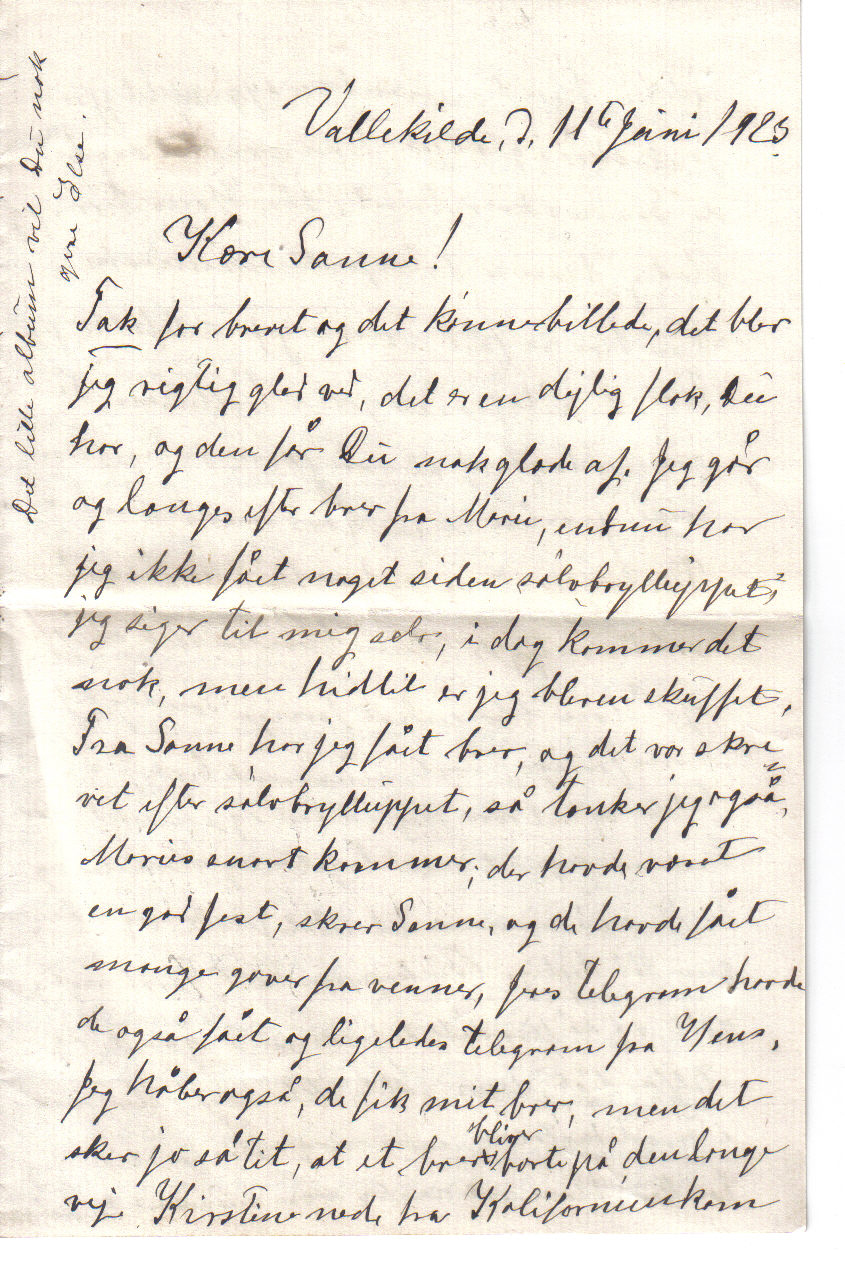 Vallekilde, d. 11te Juni 1923.
Kære Sanne!
Tak for brevet og det kønne billede, det blev
jeg rigtig glad ved, det er en dejlig flok, Du
har, og den får Du nok glæde af. Jeg går
og længes efter brev fra Marie, endnu har
jeg ikke fået noget siden sølvbrylluppet,
jeg siger til mig selv, i dag kommer det
nok, men hidtil er jeg bleven skuffet,
Fra Sanne har jeg fået brev, og det var skre
vet efter sølvbrylluppet, så tænker jeg også,
Maries snart kommer, der havde været
en god fest, skrev Sanne, og de havde fået
mange gaver fra venner, jeres telegram havde
de også fået og ligeledes telegram fra Hens,
Jeg håber også, de fik mit brev, men det
sker jo så tit, at et brev bliver borte på den lange
vej. Kirstine nede fra Kalifornien kom
Det lille album vil Du nok
give Else.